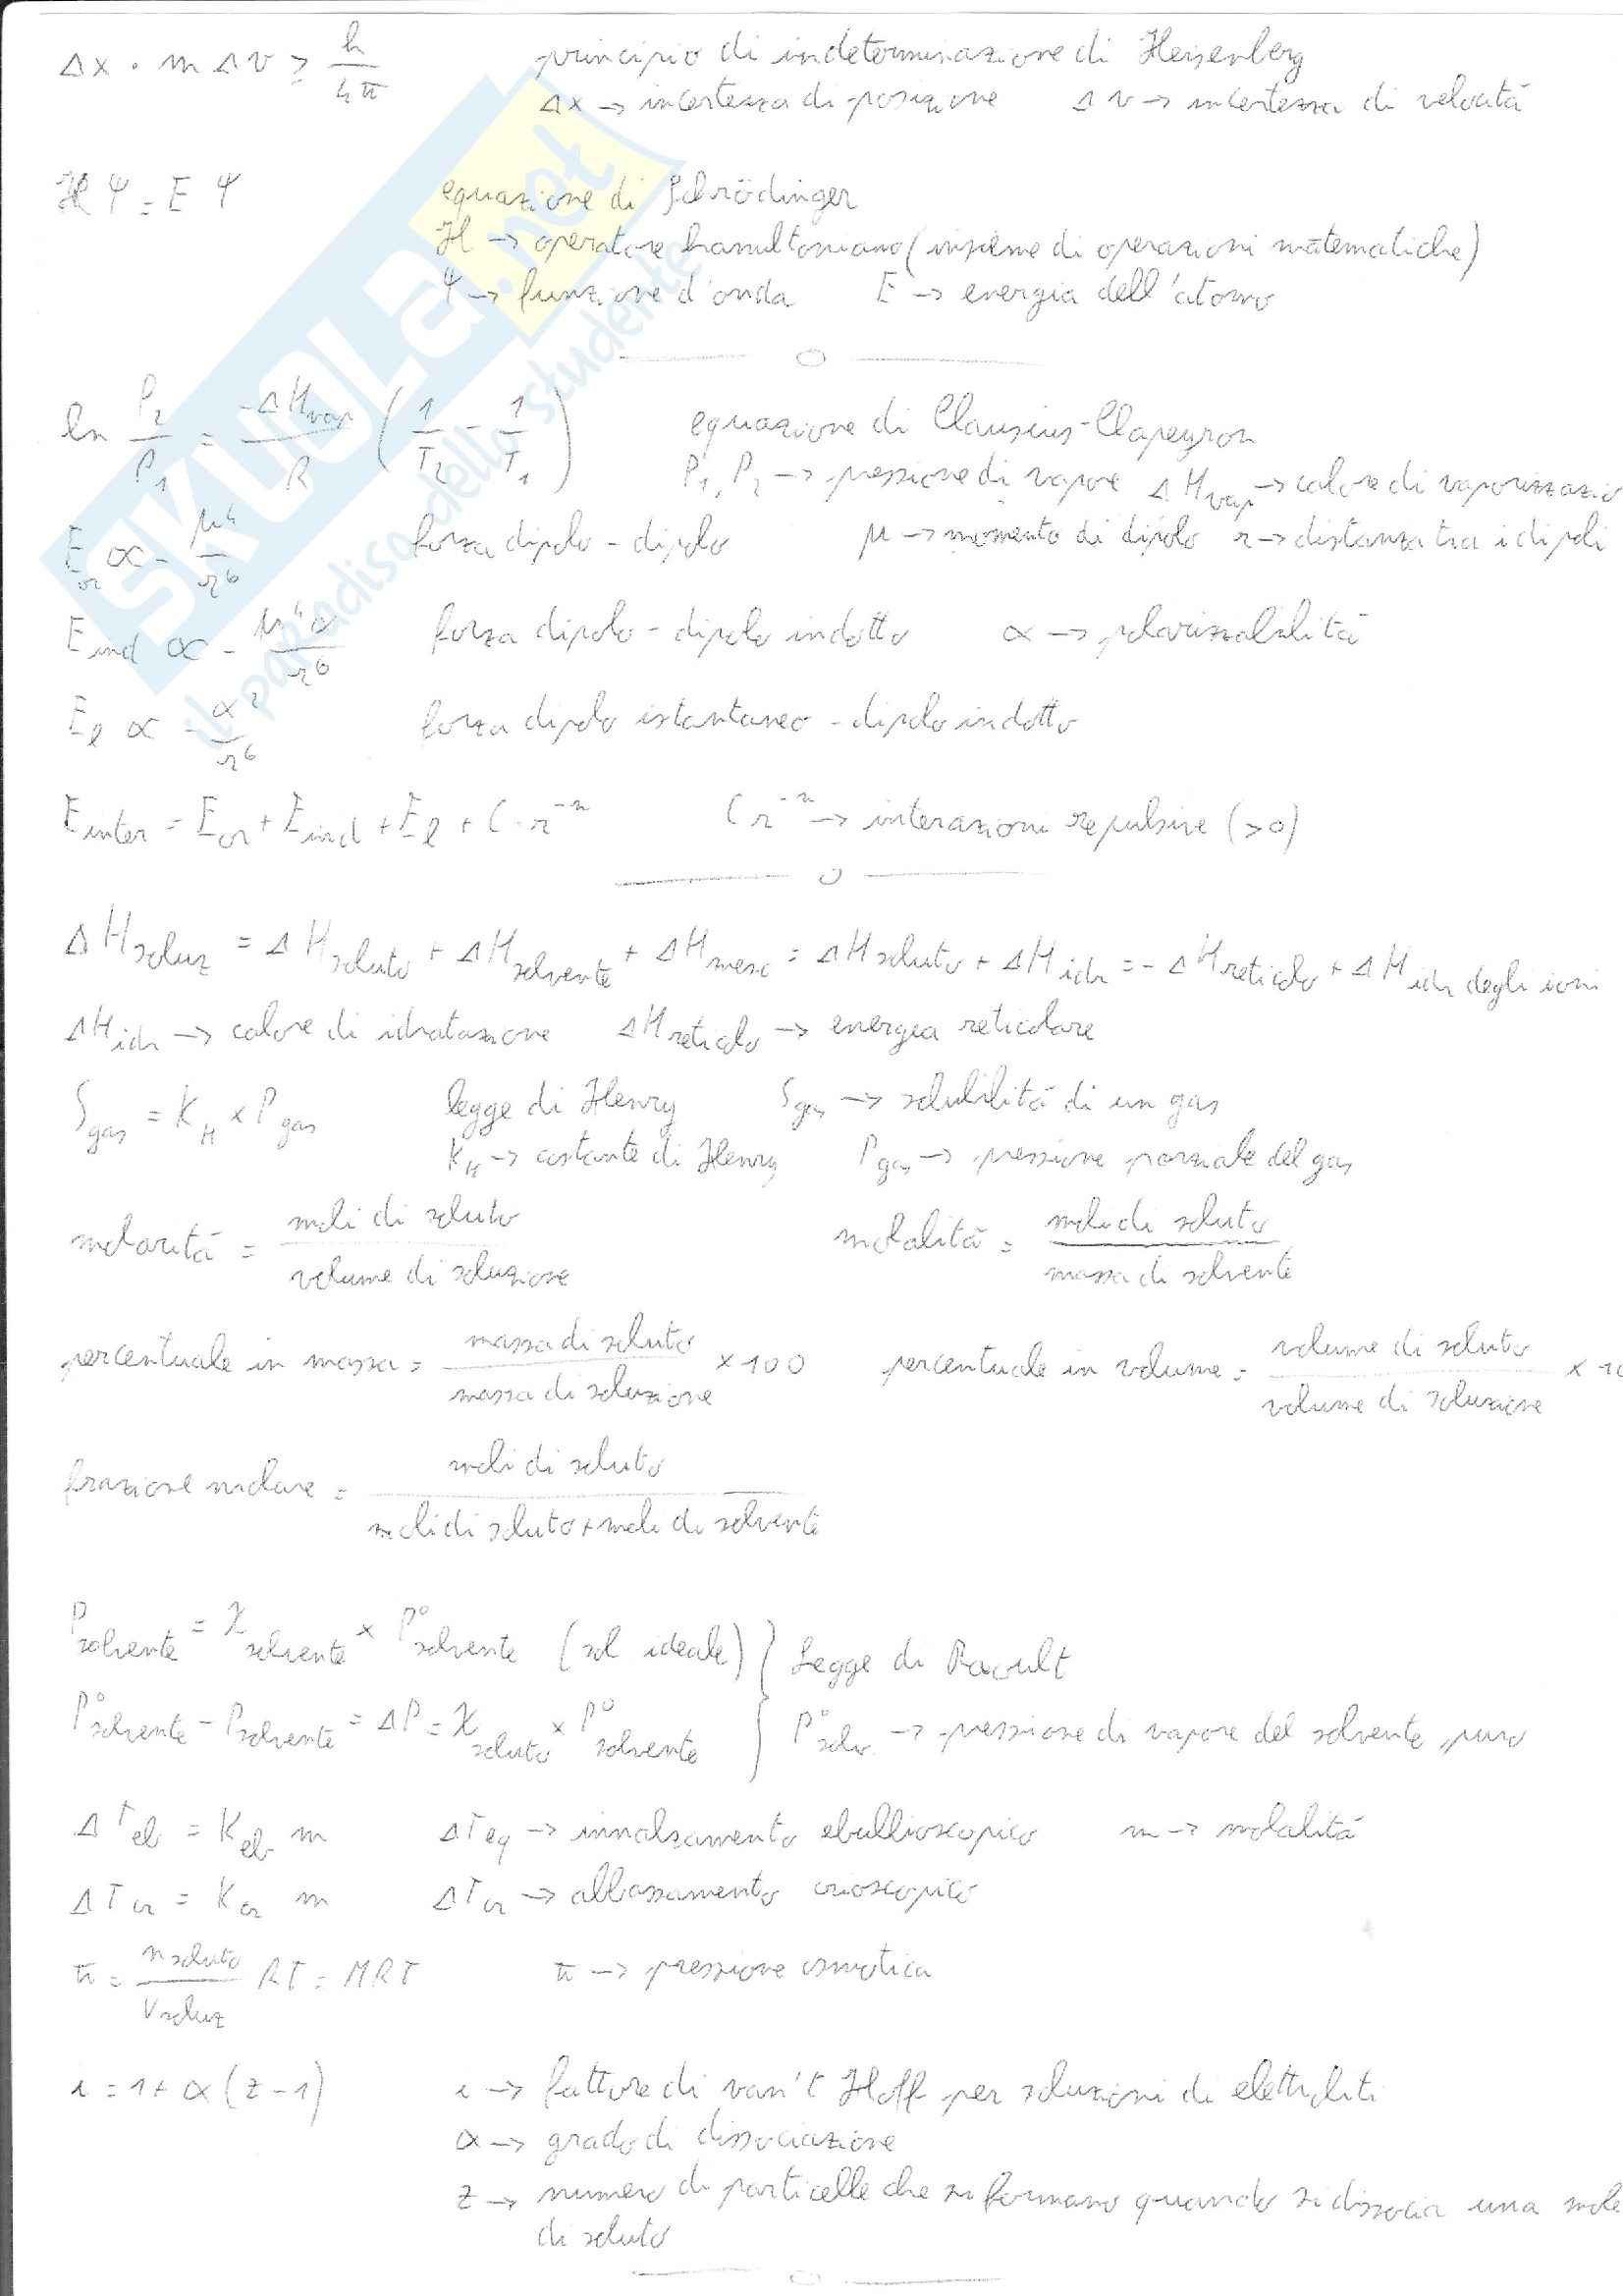 Δx · m Δv ≥ h/4π principio di indeterminazione di Heisenberg
Δx → incertezza di posizione Δv → incertezza di velocità
ℋ Ψ = E Ψ equazione di Schrödinger
ℋ → operatore hamiltoniano (insieme di operazioni matematiche)
Ψ → funzione d'onda E → energia dell'atomo
ln P₂/P₁ = -ΔHvap/R (1/T₂ - 1/T₁) equazione di Clausius-Clapeyron
P₁, P₂ → pressione di vapore ΔHvap → calore di vaporizzazio
Eor ∝ - μ⁴/r⁶ forza dipolo - dipolo μ → momento di dipolo r → distanza tra i dipoli
Eind ∝ - μ⁴α/r⁶ forza dipolo - dipolo indotto α → polarizzabilità
El ∝ - α²/r⁶ forza dipolo istantaneo - dipolo indotto
Einter = Eor + Eind + El + C · r⁻ⁿ C r⁻ⁿ → interazioni repulsive (>0)
ΔHsoluz = ΔHsoluto + ΔHsolvente + ΔHmesc = ΔHsoluto + ΔHidr = - ΔHreticolo + ΔHidr degli ioni
ΔHidr → calore di idratazione ΔHreticolo → energia reticolare
Sgas = KH × Pgas legge di Henry Sgas → solubilità di un gas
KH → costante di Henry Pgas → pressione parziale del gas
molarità = moli di soluto / volume di soluzione molalità = moli di soluto / massa di solvente
percentuale in massa = massa di soluto / massa di soluzione × 100 percentuale in volume = volume di soluto / volume di soluzione × 10
frazione molare = moli di soluto / moli di soluto + moli di solvente
Psolvente = χsolvente × P°solvente (sol ideale) } Legge di Raoult
P°solvente - Psolvente = ΔP = χsoluto × P°solvente } P°solv. → pressione di vapore del solvente puro
ΔTeb = Keb m ΔTeq → innalzamento ebullioscopico m → molalità
ΔTcr = Kcr m ΔTcr → abbassamento crioscopico
π = nsoluto/Vsoluz RT = MRT π → pressione osmotica
i = 1 + α (z - 1) i → fattore di van't Hoff per soluzioni di elettroliti
α → grado di dissociazione
z → numero di particelle che si formano quando si dissocia una mole
di soluto
SKUOLA.net
il paradiso dello studente